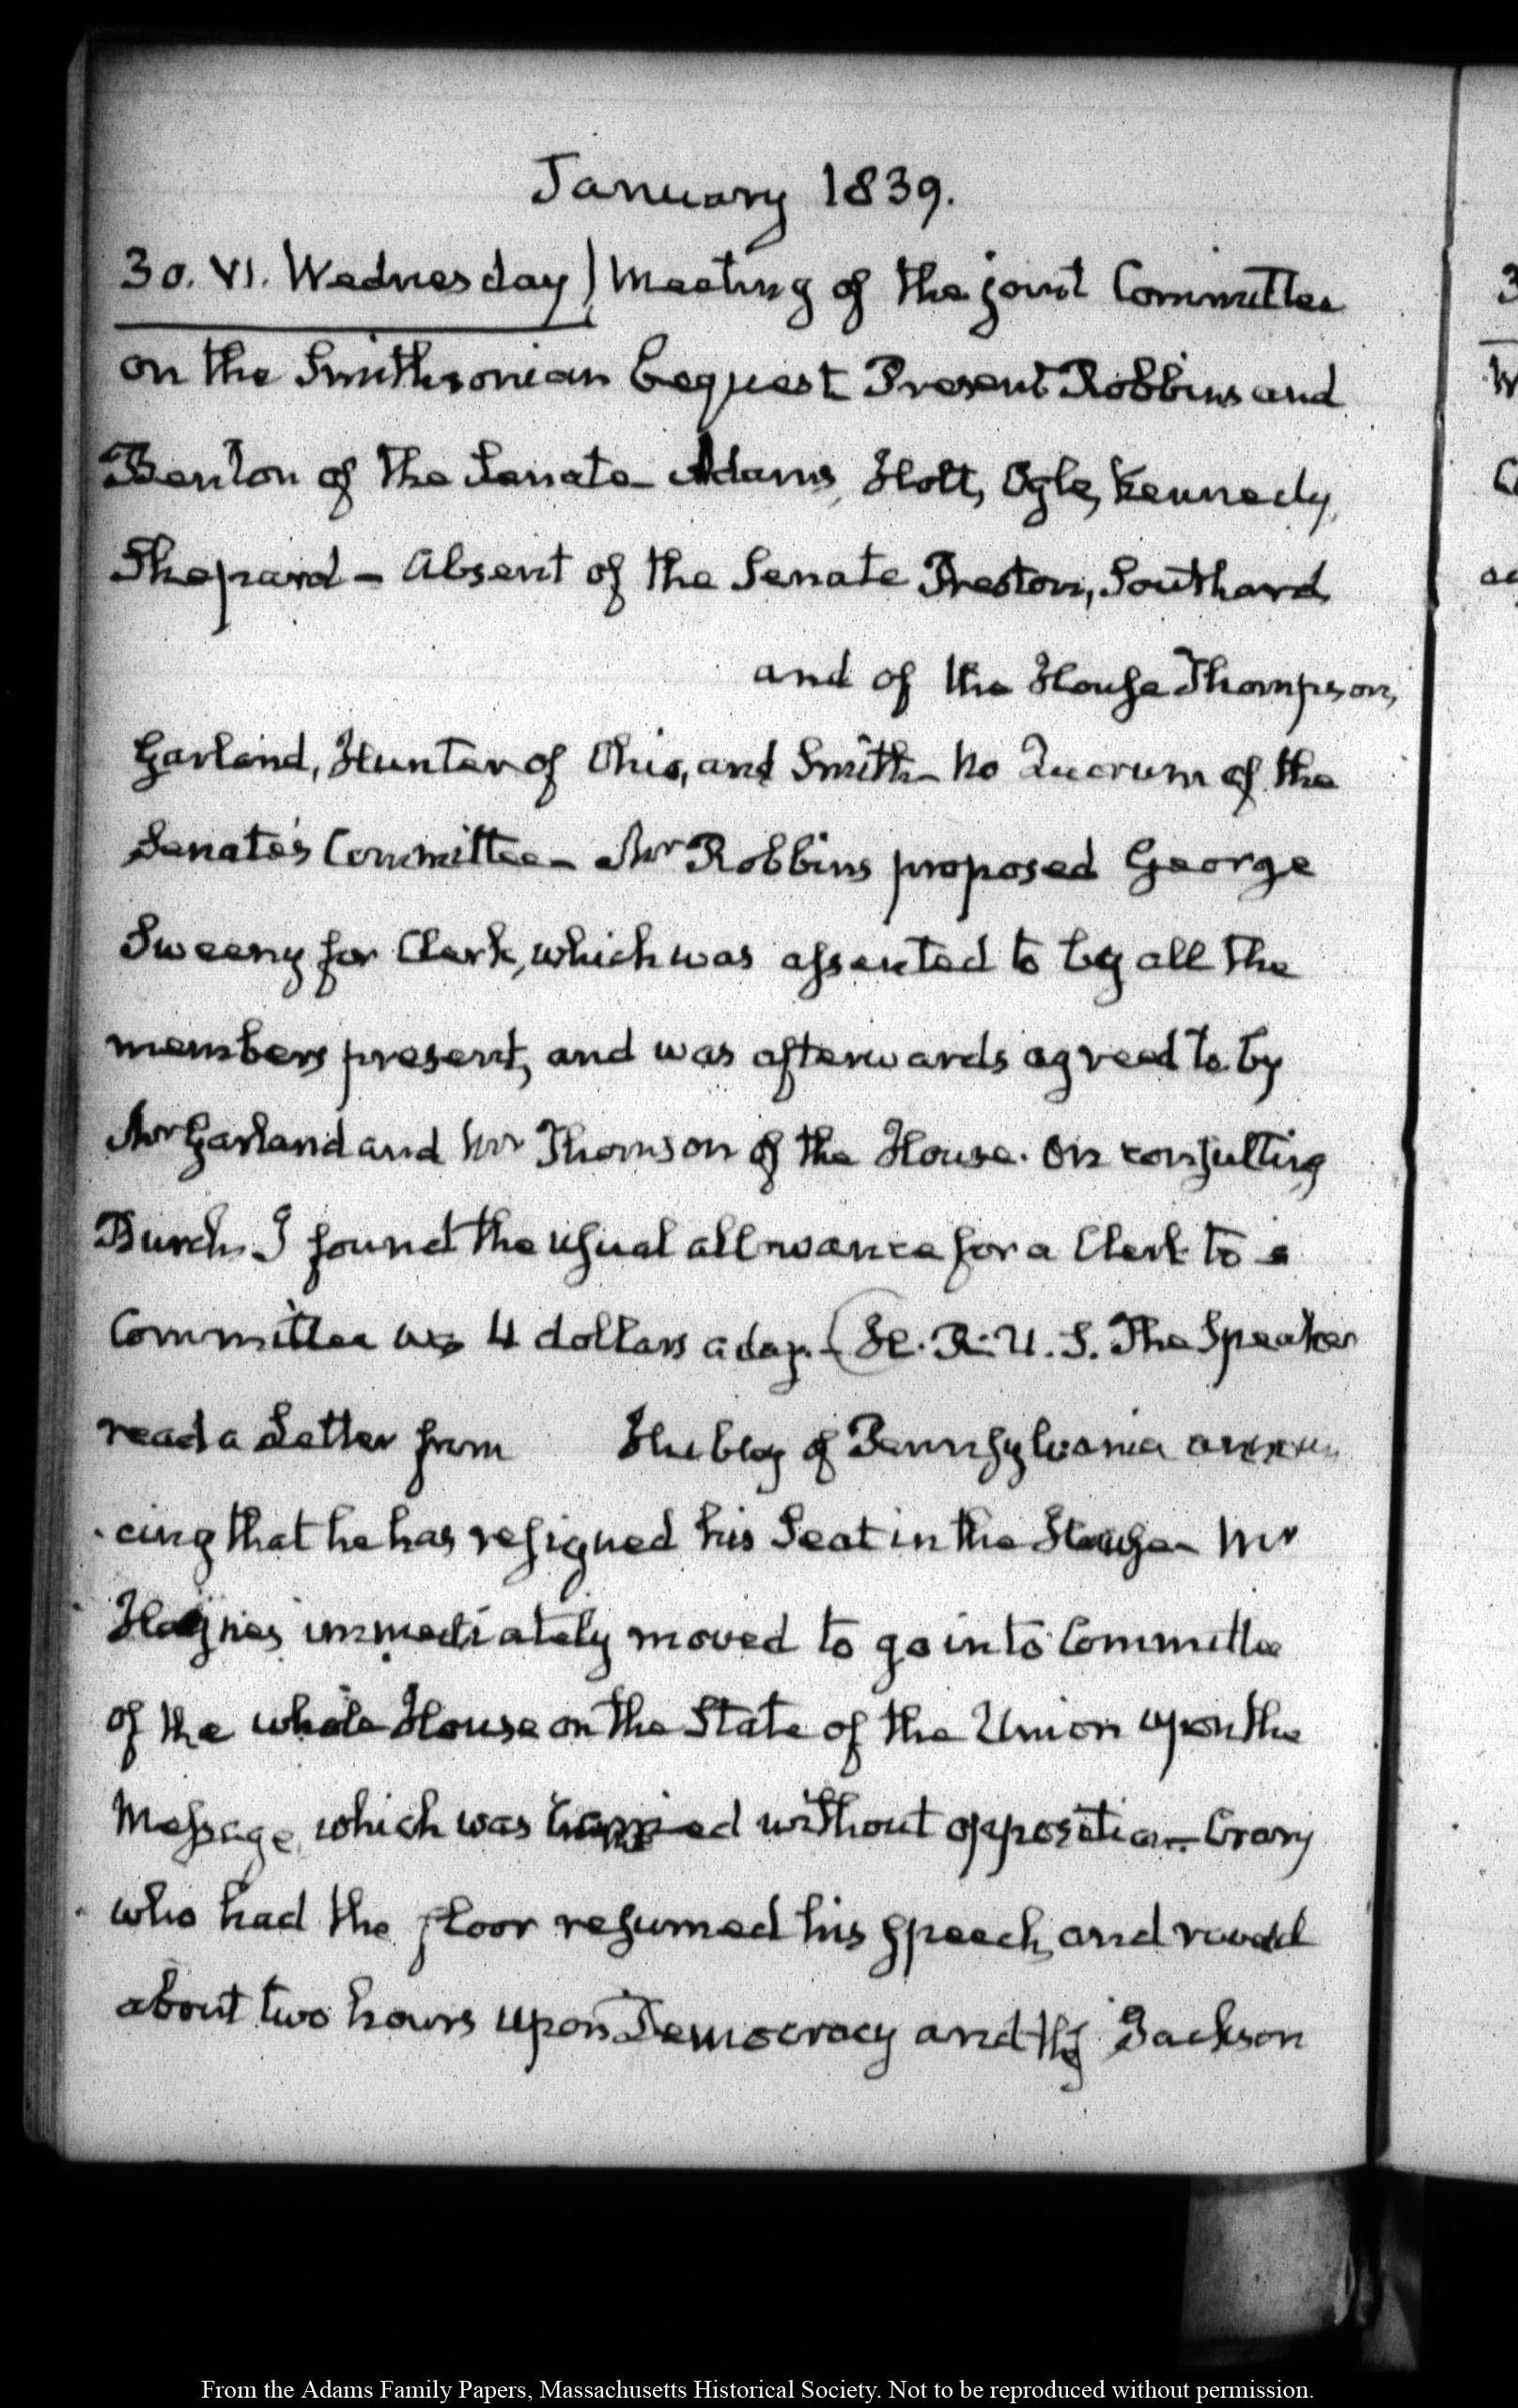 January 1839.
30. VI. Wednesday) Meeting of the joint Committee
on the Smithsonian bequest Present Robbins and
Benton of the Senate Adams, Holt, Ogle, Kennedy,
Shepard – Absent of the Senate Preston, Southard
and of the House Thompson,
Garland, Hunter of Ohio, and Smith – No Quorum of the
Senate's Committee – Mr Robbins proposed George
Sweeny for Clerk, which was assented to by all the
members present, and was afterwards agreed to by
Mr Garland and Mr Thomson of the House. On consulting
Burch I found the usual allowance for a Clerk to a
Committee was 4 dollars a day. – (H. R. U. S. The Speaker
read a Letter from Hubley of Pennsylvania announ
cing that he has resigned his Seat in the House – Mr
Haynes immediately moved to go into Committee
of the whole House on the State of the Union upon the
Message, which was carried without opposition – Crary
who had the floor resumed his speech, and raved
about two hours upon Democracy and the Jackson
3
W
From the Adams Family Papers, Massachusetts Historical Society. Not to be reproduced without permission.